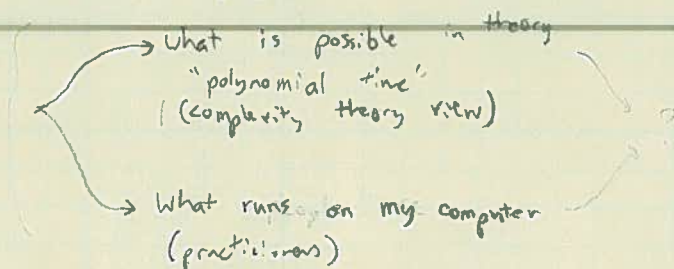 What is possible in theory
"polynomial time"
(complexity theory view)
?
What runs on my computer
(practitioners)